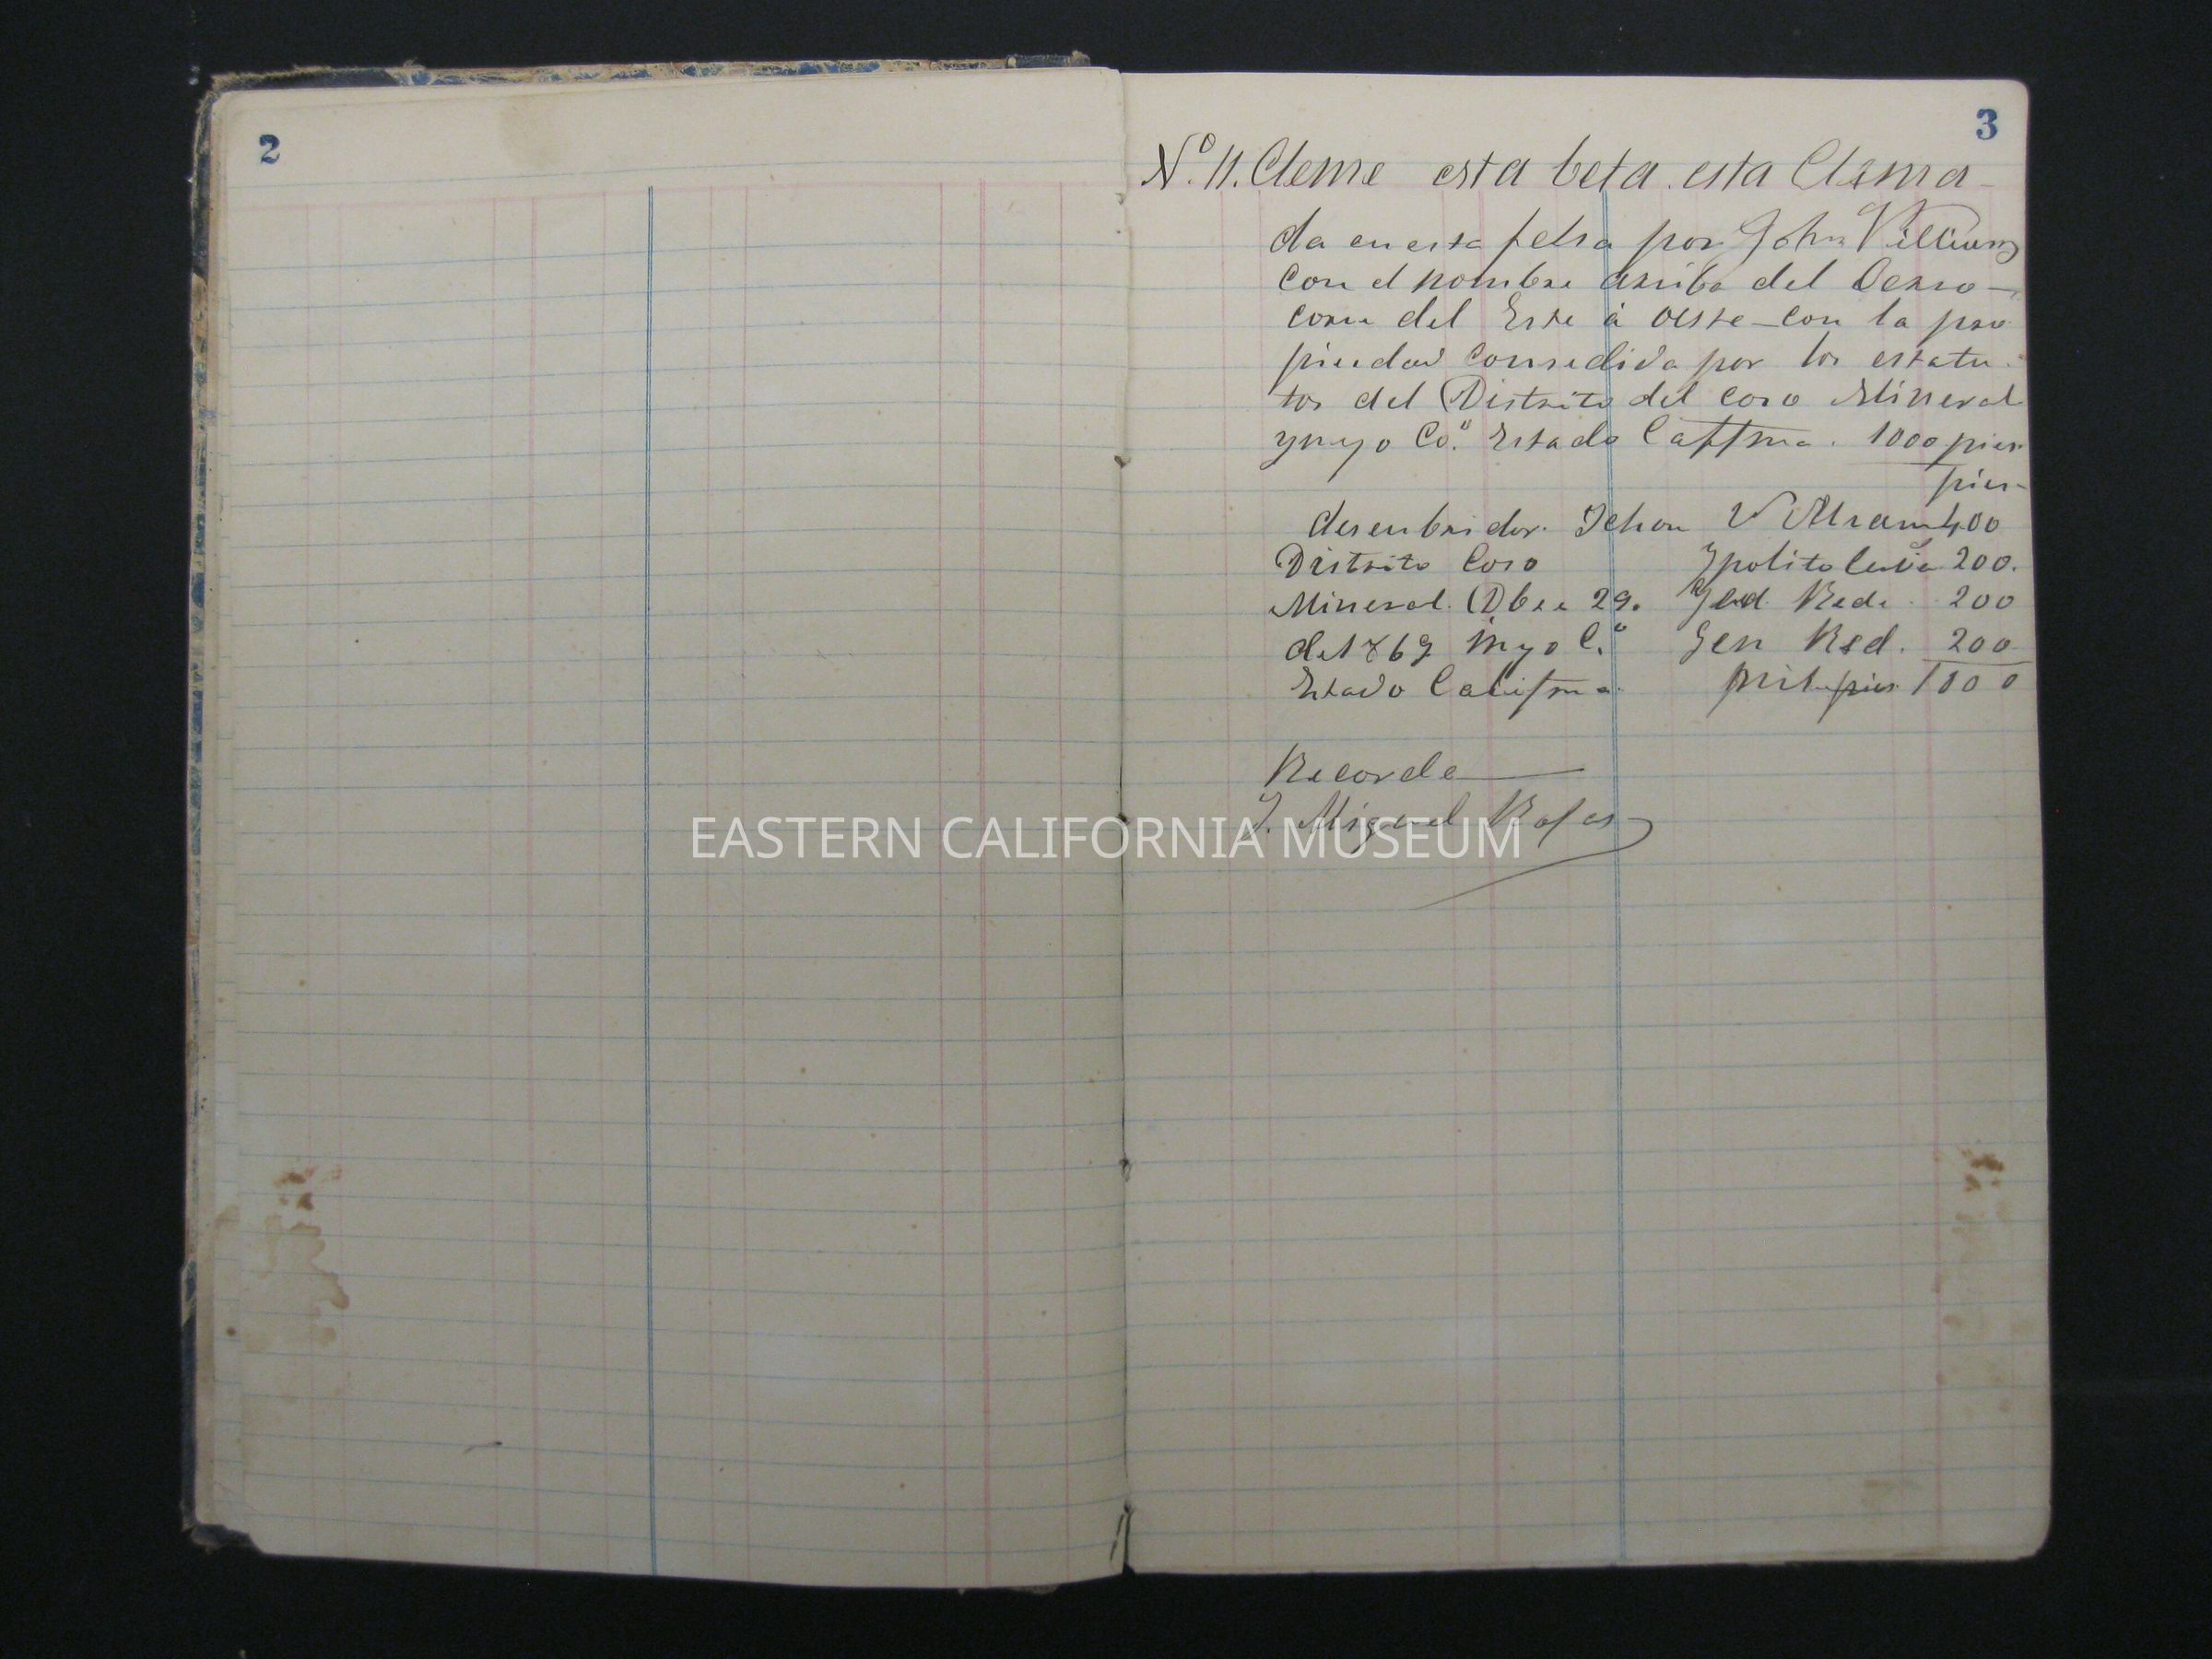 2
3
No. 11. Cleme esta beta. esta Clema-
da en esta felsa por John Villiams
Con el nombre arriba del Cerro
corre del Este á oeste con la pro
piedad Consedida por los estatu
tos del Distrito del Coso Mineral
ynyo Co. Estado Calfrna. 1000 pies
pies
desenbridor. Jchon Villiam 400
Distrito Coso Ypolito 200.
Mineral. Dbre 29. Rede. 200
de 1869 inyo C. Gen Red. 200
Estado Califrna. mil pies 1000
Recorde
J. Miguel Rofas
EASTERN CALIFORNIA MUSEUM